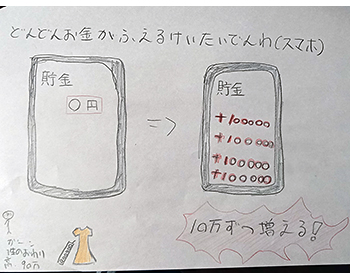 どんどんお金がふえるけいたいでんわ(スマホ)
貯金
〇円
貯金
+100000
+100000
+100000
+100000
10万ずつ増える!
ガーン